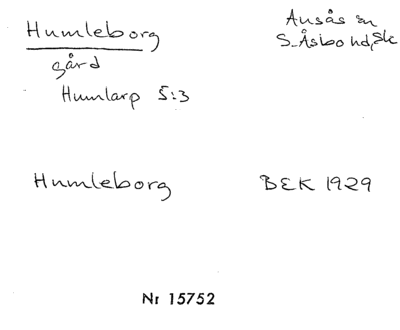 Humleborg
Ausås sn
S. Åsbo hd, Sk
gård
Humlarp 5:3
Humleborg BEK 1929
Nr 15752